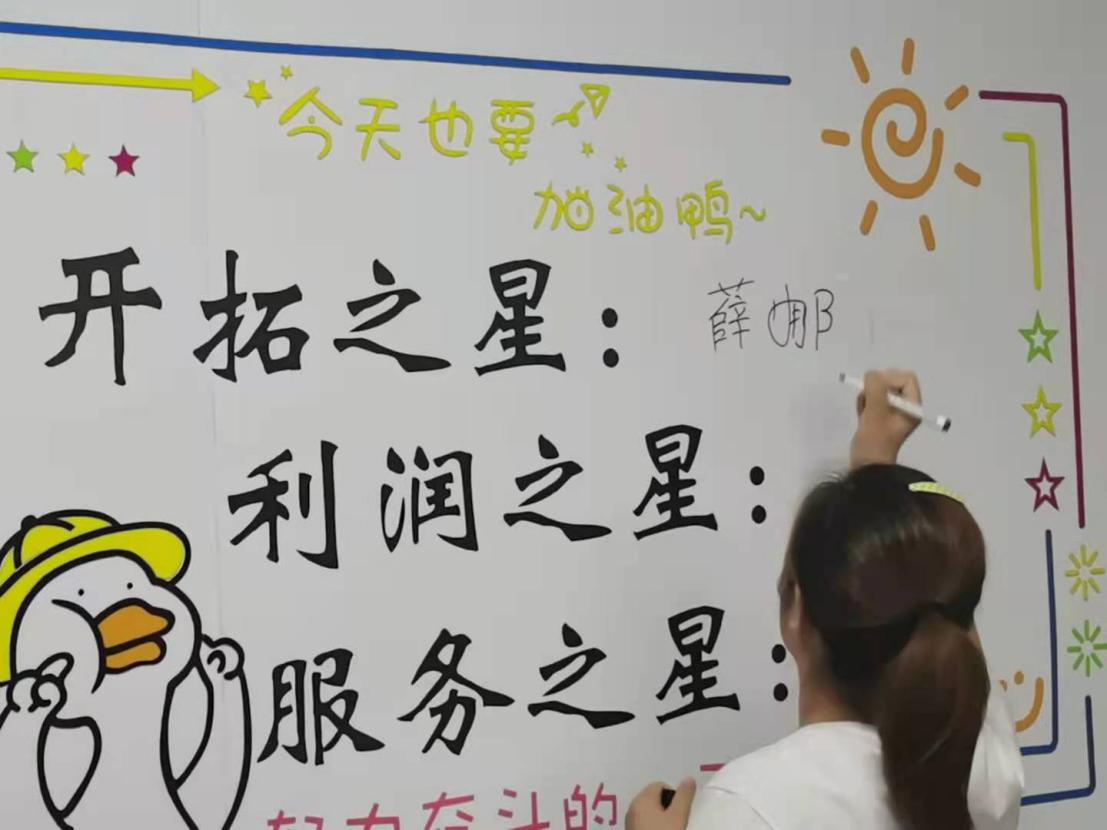 今天也要
加油鸭~
开拓之星：薛娜
利润之星：
服务之星：
努力奋斗的